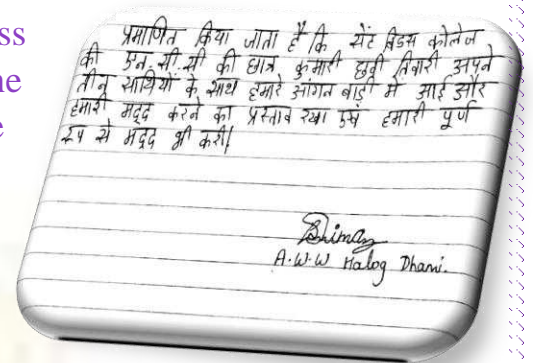 ss
ne
e
प्रमाणित किया जाता है कि सेंट बिडस कोलेज
की एन.सी.सी की छात्र कुमारी छवी तिवारी अपने
तीन साथियों के साथ हमारे आंगन बाड़ी मे आई और
हमारी मदद करने का प्रस्ताव रखा एवं हमारी पूर्ण
रूप से मदद भी करी।
A.W.W Halog Dhami.